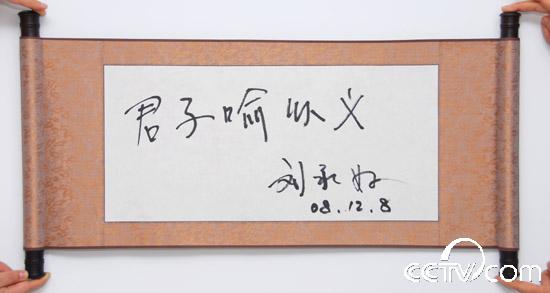 君子喻以义
刘永好
08.12.8
CCTV.com